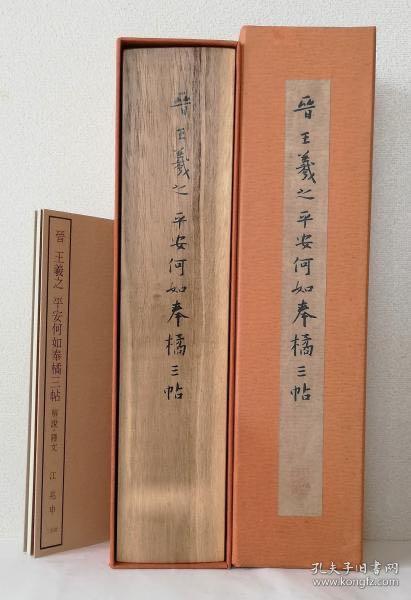 晉 王羲之 平安何如奉橘三帖 解說·釋文 江兆申
晉王羲之平安何如奉橘三帖
晉王羲之平安何如奉橘三帖
孔夫子旧书网
www.kongfz.com